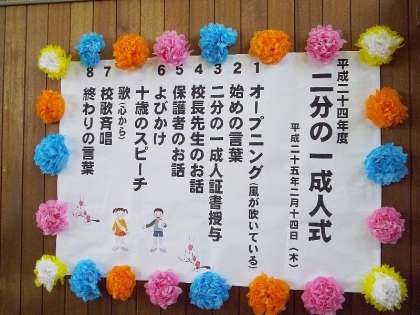 平成二十四年度
二分の一成人式
平成二十五年二月十四日(木)
1 オープニング(風が吹いている)
2 始めの言葉
3 二分の一成人証書授与
4 校長先生のお話
5 保護者のお話
6 よびかけ
十歳のスピーチ
歌(心から)
7 校歌斉唱
8 終わりの言葉